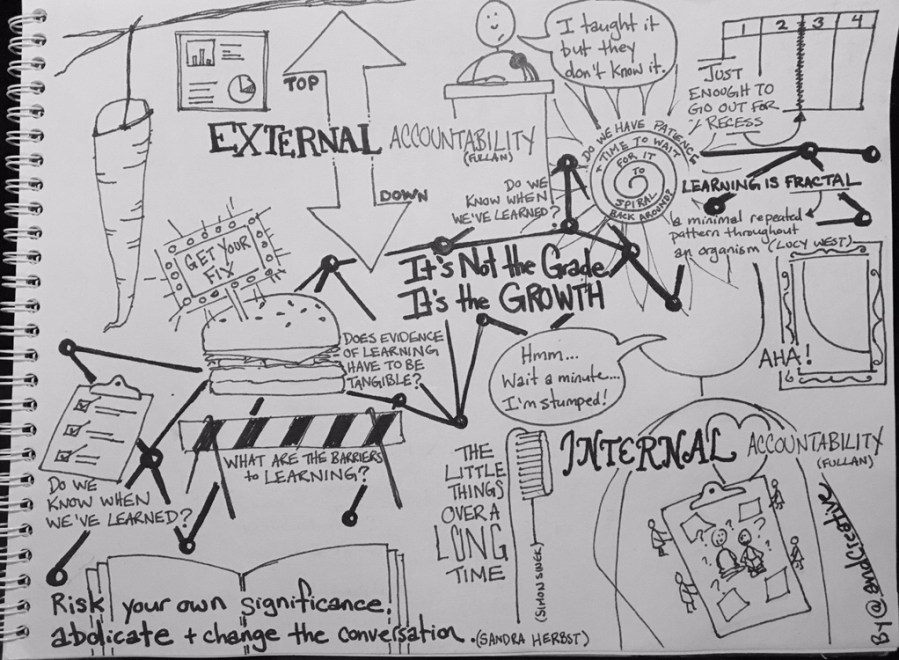 TOP
EXTERNAL ACCOUNTABILITY
(FULLAN)
DOWN
I taught it
but they
don't know it.
1 2 3 4
JUST
ENOUGH TO
GO OUT FOR
RECESS
DO WE HAVE PATIENCE
+ TIME TO WAIT
FOR IT
TO
SPIRAL
BACK AROUND?
LEARNING IS FRACTAL
a minimal repeated
pattern throughout
an organism (LUCY WEST)
DO WE
KNOW WHEN
WE'VE LEARNED?
GET YOUR
FIX
It's Not the Grade
It's the GROWTH
DOES EVIDENCE
OF LEARNING
HAVE TO BE
TANGIBLE?
Hmm...
Wait a minute...
I'm stumped!
AHA!
WHAT ARE THE BARRIERS
to LEARNING?
DO WE
KNOW WHEN
WE'VE LEARNED?
THE
LITTLE
THINGS
OVER A
LONG
TIME
(SIMON SINEK)
INTERNAL ACCOUNTABILITY
(FULLAN)
Risk your own significance,
abdicate + change the conversation. (SANDRA HERBST)